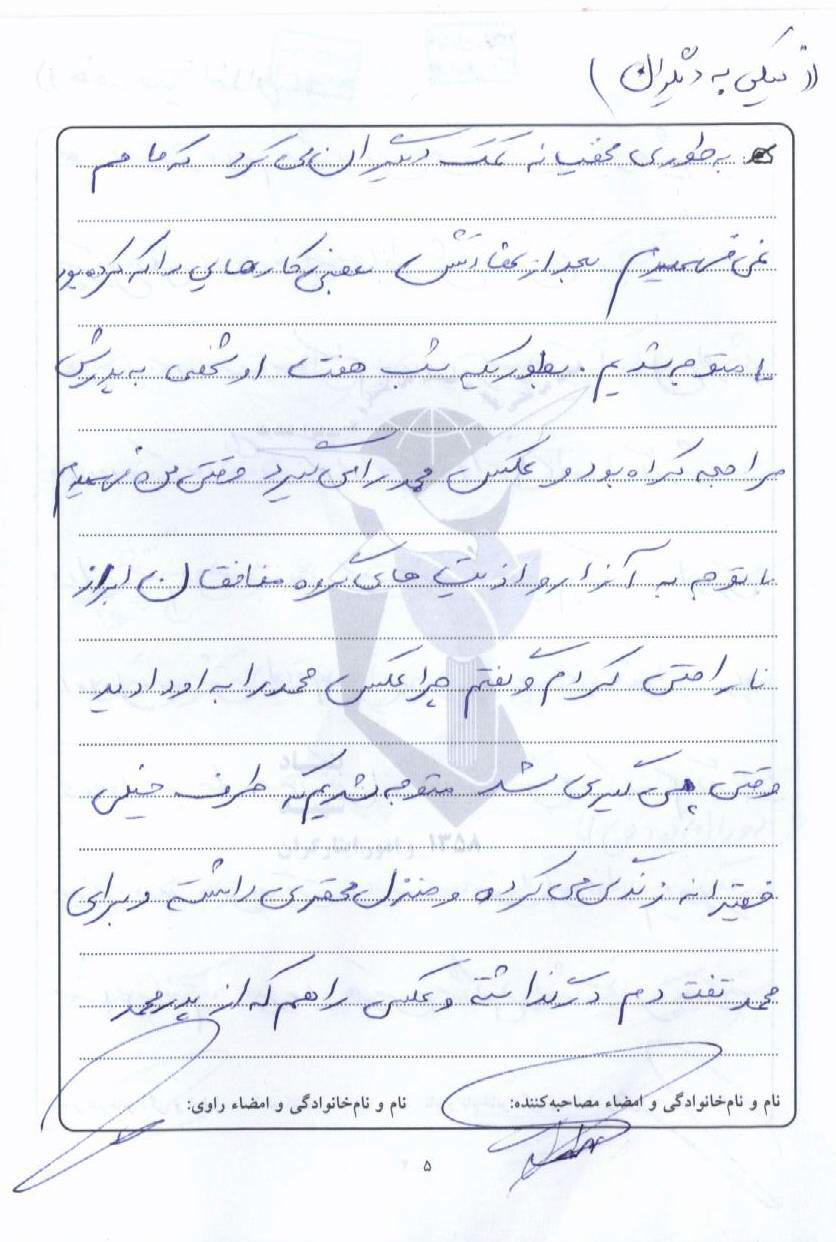 (( نیکی به دیگران ))
به طوری مخفیانه کمک دیگران می کرد که ما هم
نمی فهمیدیم بعد از شهادتش بعضی کارهایی را که کرده بود
ما متوجه شدیم. بطوریکه شب هفت او شخصی به پدرش
مراجعه کرده بود و عکس محمد را می گیرد وقتی من فهمیدم
با توجه به آزار و اذیت های گروه منافقان ابراز
ناراحتی کردم و گفتم چرا عکس محمد را به او دادید
وقتی پی گیری شد متوجه شدیم که طرف خیلی
فقیرانه زندگی می کرده و منزل محقری داشته و برای
محمد هم گذاشته و عکس را هم که از پدر محمد
نام و نام‌خانوادگی و امضاء مصاحبه‌کننده:
نام و نام‌خانوادگی و امضاء راوی:
۵
۱۳۵۸